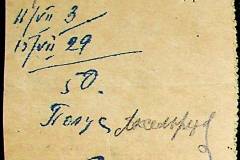 11/VII 3
13/VII 29
50.
Пепус Аксельруд